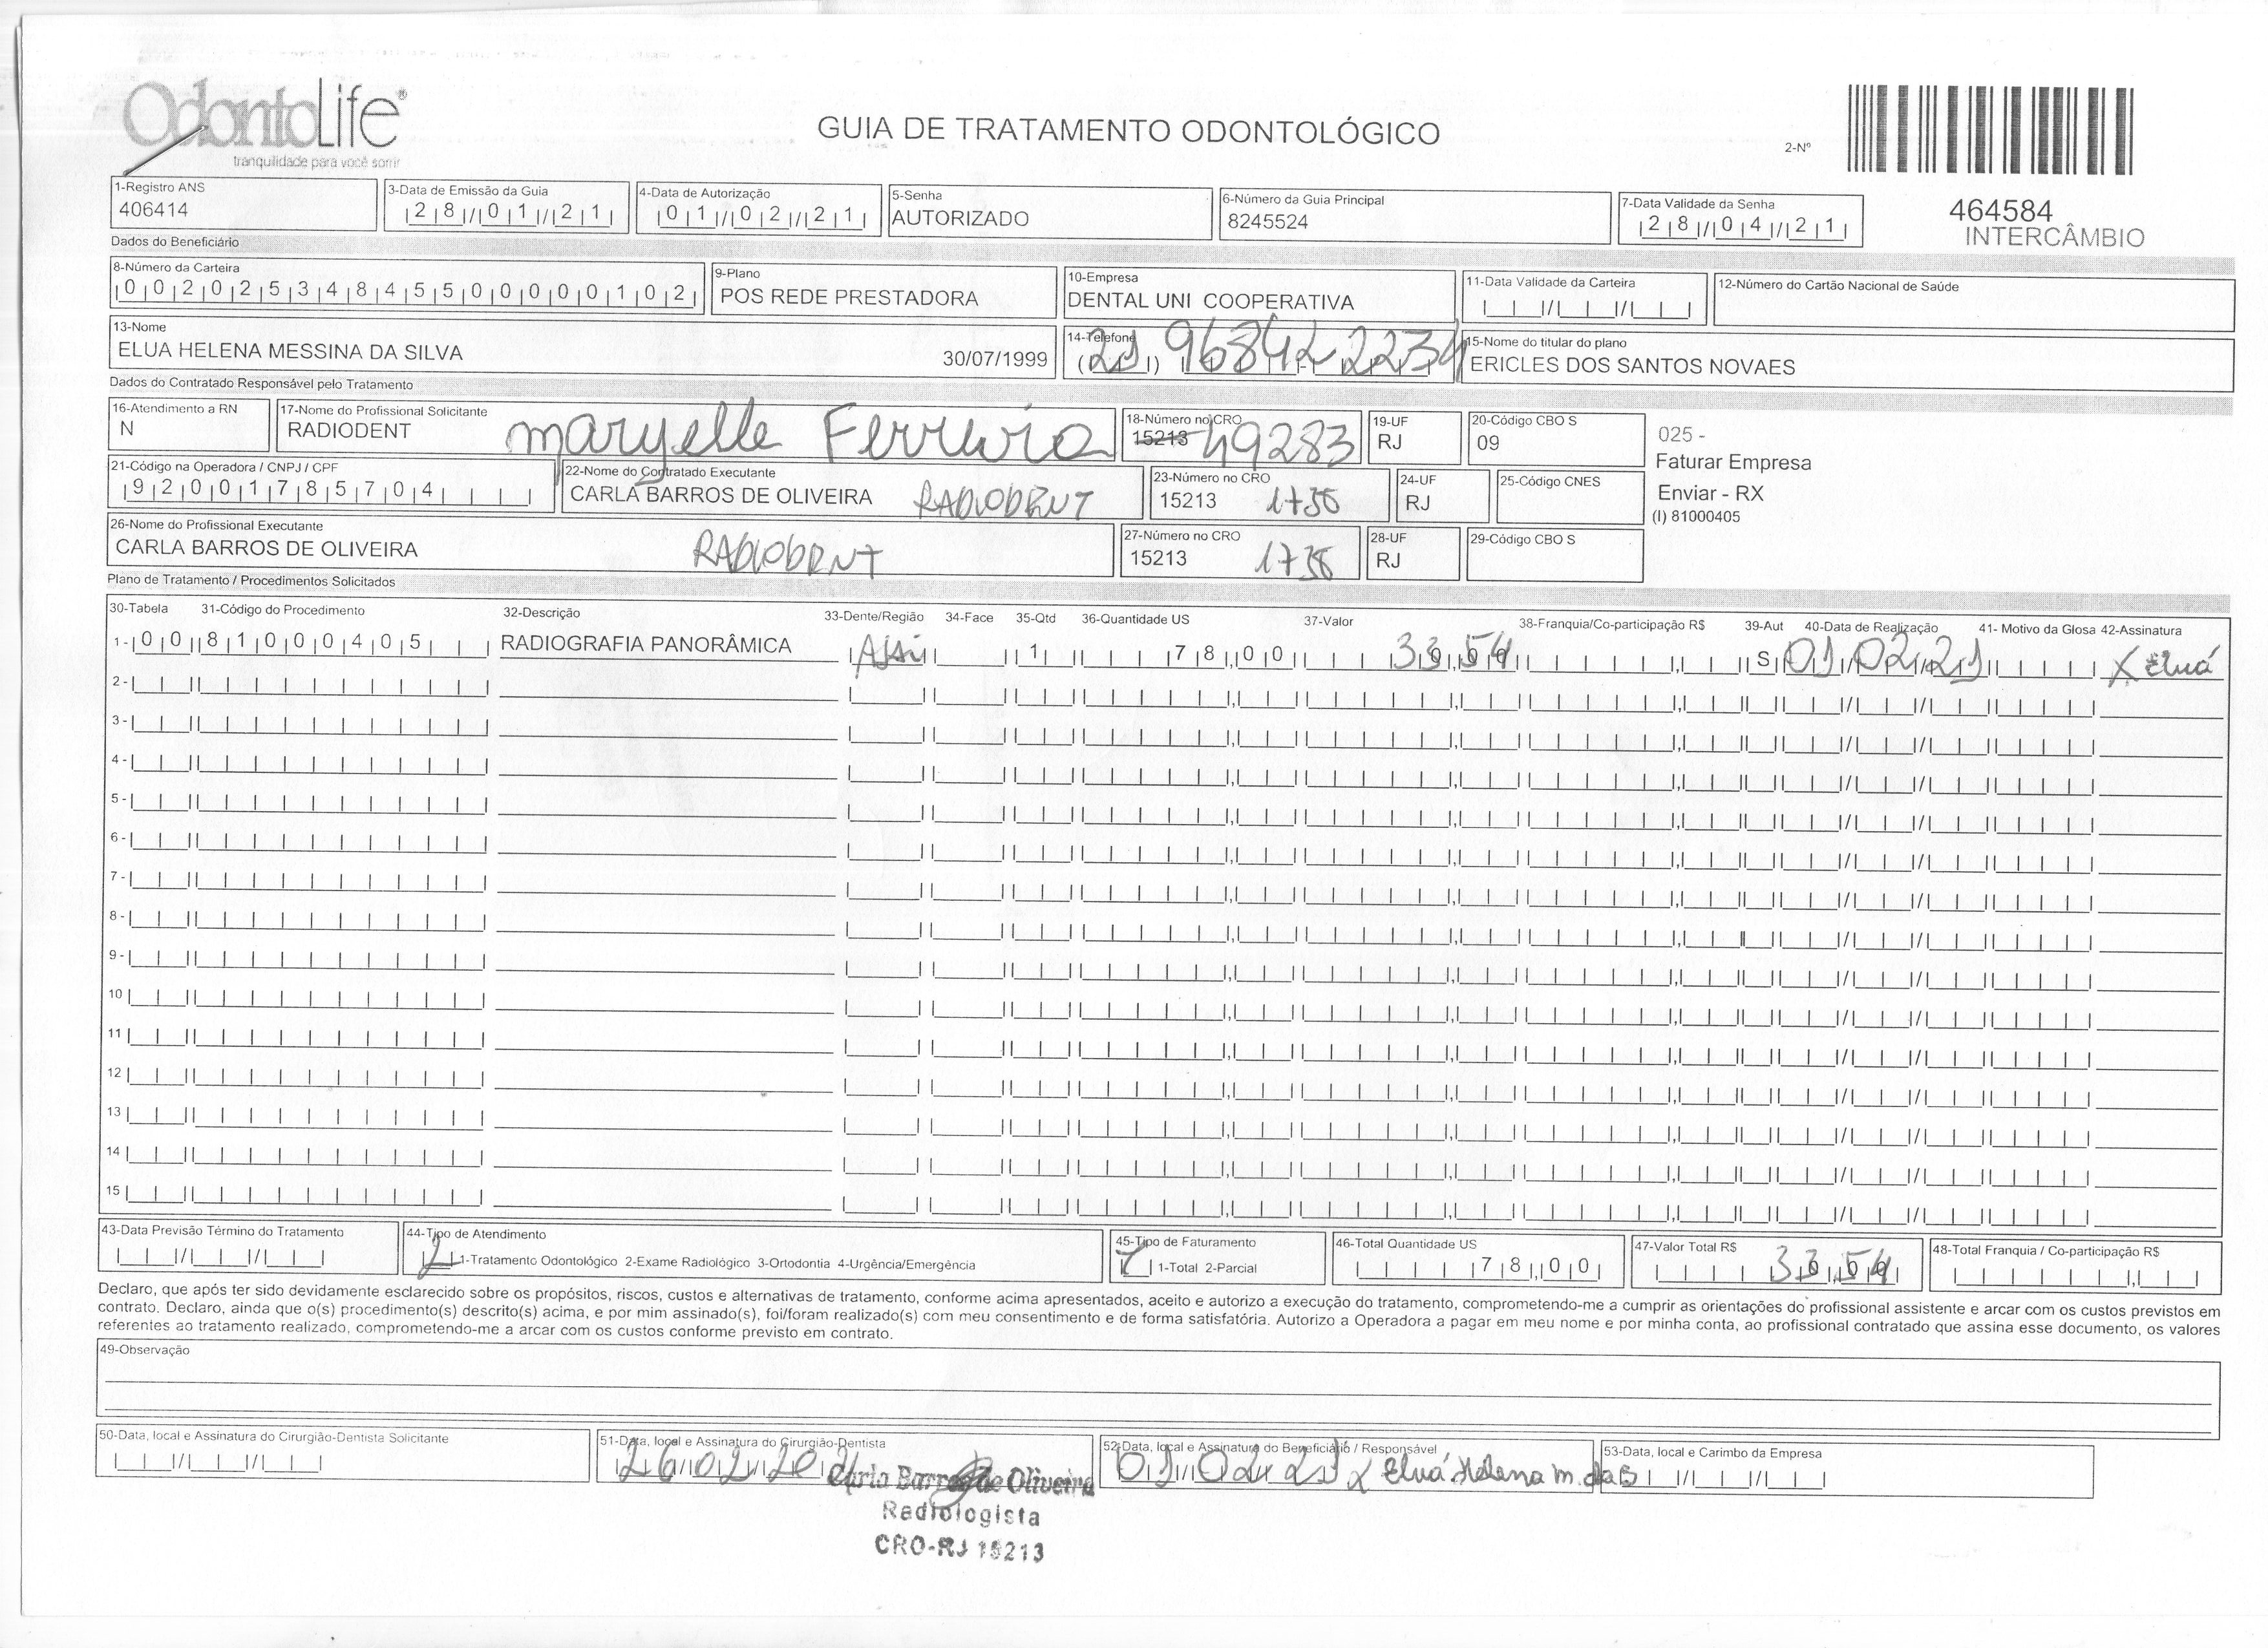 OdontoLife®
tranquilidade para você sorrir
GUIA DE TRATAMENTO ODONTOLÓGICO
2-Nº
464584
INTERCÂMBIO
1-Registro ANS
406414
3-Data de Emissão da Guia
28/01/21
4-Data de Autorização
01/02/21
5-Senha
AUTORIZADO
6-Número da Guia Principal
8245524
7-Data Validade da Senha
28/04/21
Dados do Beneficiário
8-Número da Carteira
00202534845500000102
9-Plano
POS REDE PRESTADORA
10-Empresa
DENTAL UNI COOPERATIVA
11-Data Validade da Carteira
12-Número do Cartão Nacional de Saúde
13-Nome
ELUA HELENA MESSINA DA SILVA 30/07/1999
14-Telefone
(21) 96842-2234
15-Nome do titular do plano
ERICLES DOS SANTOS NOVAES
Dados do Contratado Responsável pelo Tratamento
16-Atendimento a RN
N
17-Nome do Profissional Solicitante
RADIODENT maryelle Ferreira
18-Número no CRO
15213 49283
19-UF
RJ
20-Código CBO S
09
025 -
Faturar Empresa
Enviar - RX
(I) 81000405
21-Código na Operadora / CNPJ / CPF
92001785704
22-Nome do Contratado Executante
CARLA BARROS DE OLIVEIRA RADIODENT
23-Número no CRO
15213 1738
24-UF
RJ
25-Código CNES
26-Nome do Profissional Executante
CARLA BARROS DE OLIVEIRA RADIODENT
27-Número no CRO
15213 1738
28-UF
RJ
29-Código CBO S
Plano de Tratamento / Procedimentos Solicitados
30-Tabela 31-Código do Procedimento 32-Descrição 33-Dente/Região 34-Face 35-Qtd 36-Quantidade US 37-Valor 38-Franquia/Co-participação R$ 39-Aut 40-Data de Realização 41- Motivo da Glosa 42-Assinatura
1- 00 81000405 RADIOGRAFIA PANORÂMICA 1 78,00 33,54 S 01/02/21 X Eluá
2-
3-
4-
5-
6-
7-
8-
9-
10
11
12
13
14
15
43-Data Previsão Término do Tratamento
44-Tipo de Atendimento
2 1-Tratamento Odontológico 2-Exame Radiológico 3-Ortodontia 4-Urgência/Emergência
45-Tipo de Faturamento
1 1-Total 2-Parcial
46-Total Quantidade US
78,00
47-Valor Total R$
33,54
48-Total Franquia / Co-participação R$
Declaro, que após ter sido devidamente esclarecido sobre os propósitos, riscos, custos e alternativas de tratamento, conforme acima apresentados, aceito e autorizo a execução do tratamento, comprometendo-me a cumprir as orientações do profissional assistente e arcar com os custos previstos em
contrato. Declaro, ainda que o(s) procedimento(s) descrito(s) acima, e por mim assinado(s), foi/foram realizado(s) com meu consentimento e de forma satisfatória. Autorizo a Operadora a pagar em meu nome e por minha conta, ao profissional contratado que assina esse documento, os valores
referentes ao tratamento realizado, comprometendo-me a arcar com os custos conforme previsto em contrato.
49-Observação
50-Data, local e Assinatura do Cirurgião-Dentista Solicitante
51-Data, local e Assinatura do Cirurgião-Dentista
26/02/2021
Carla Barros de Oliveira
Radiologista
CRO-RJ 15213
52-Data, local e Assinatura do Beneficiário / Responsável
01/02/21 X Eluá Helena m. da S
53-Data, local e Carimbo da Empresa